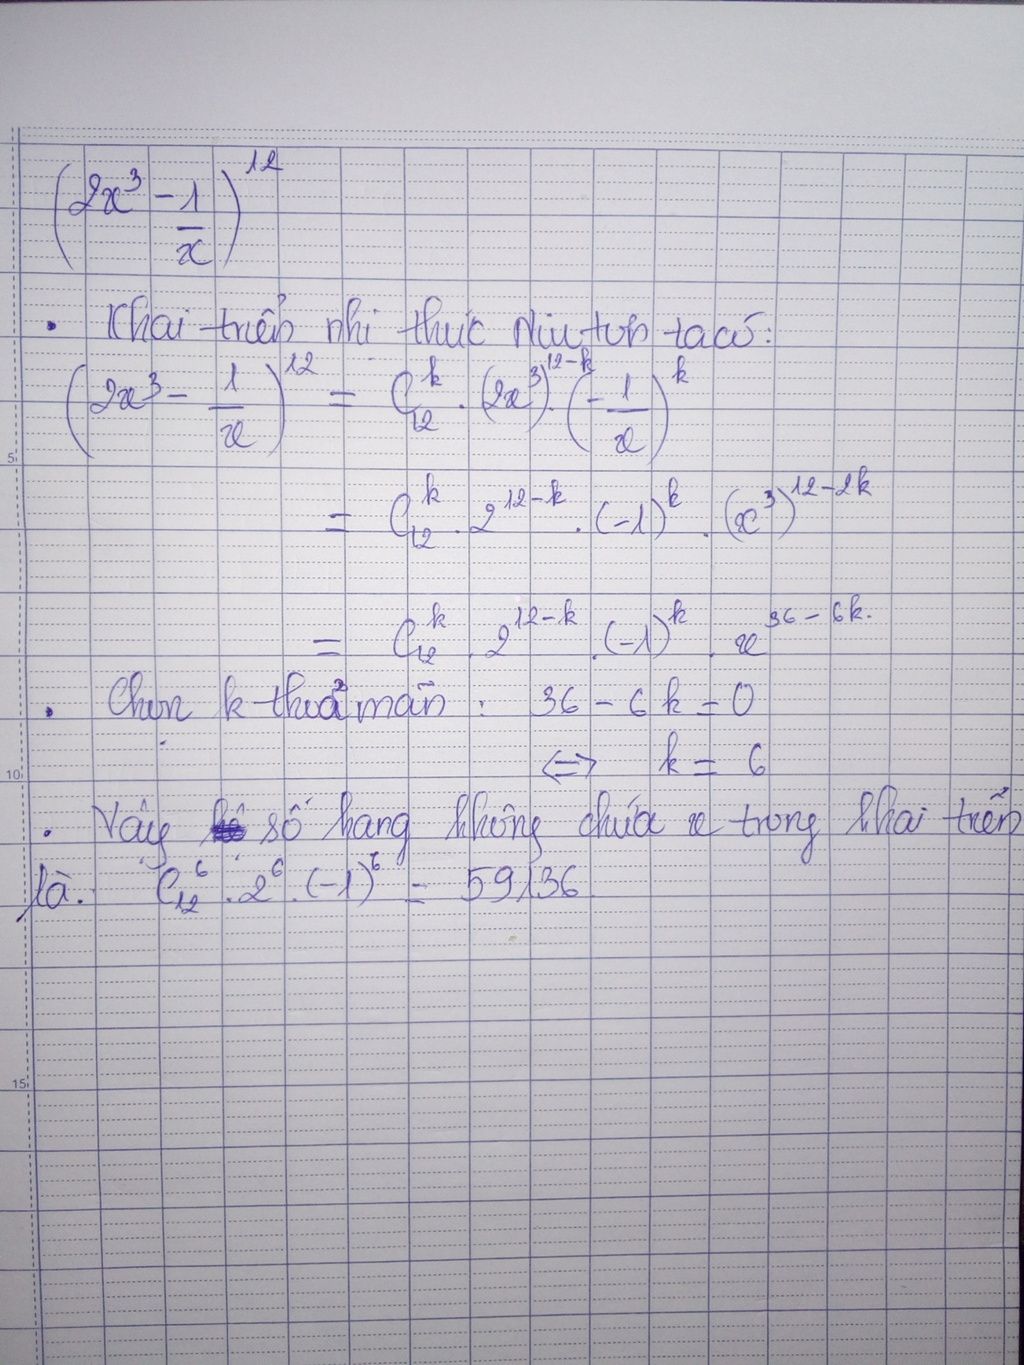 (2x³ - 1/x)¹²
• Khai triển nhị thức Niu tơn ta có:
(2x³ - 1/x)¹² = C₁₂ᵏ . (2x³)¹²⁻ᵏ . (-1/x)ᵏ
= C₁₂ᵏ . 2¹²⁻ᵏ . (-1)ᵏ . (x³)¹²⁻²ᵏ
= C₁₂ᵏ . 2¹²⁻ᵏ . (-1)ᵏ . x³⁶⁻⁶ᵏ.
• Chọn k thoả mãn : 36 - 6k = 0
⇔ k = 6
• Vậy số hạng không chứa x trong khai triển
là: C₁₂⁶ . 2⁶ . (-1)⁶ = 59136
5
10
15